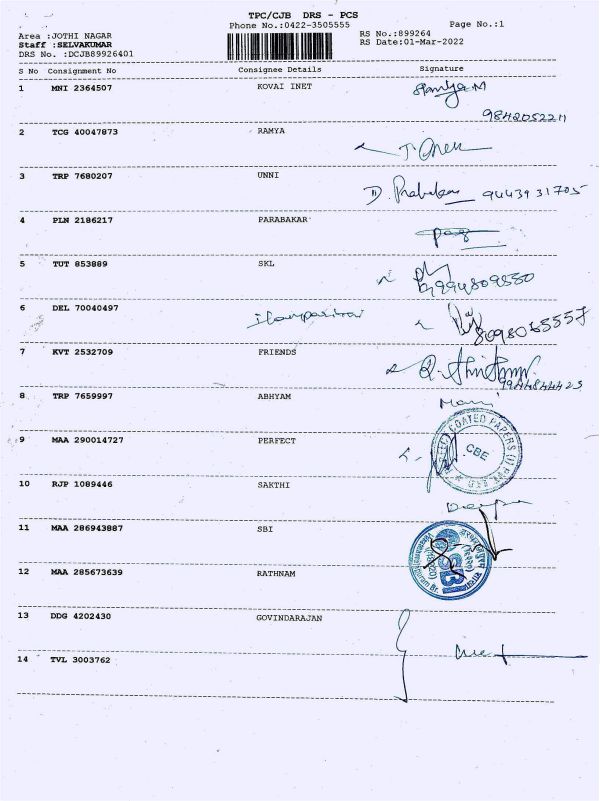 TPC/CJB DRS - PCS
Phone No.:0422-3505555
Page No.:1
Area :JOTHI NAGAR
RS No.:899264
Staff :SELVAKUMAR
RS Date:01-Mar-2022
DRS No. :DCJB89926401
S No Consignment No Consignee Details Signature
1 MNI 2364507 KOVAI INET
9842052211
2 TCG 40047873 RAMYA
3 TRP 7680207 UNNI
D. Prabakar 9443931705
4 PLN 2186217 PARABAKAR
5 TUT 853889 SKL
9994809550
6 DEL 70040497
8098065557
7 KVT 2532709 FRIENDS
8 TRP 7659997 ABHYAM
Mani
COATED PAPERS (I) PVT
CBE
9 MAA 290014727 PERFECT
10 RJP 1089446 SAKTHI
Deepa
11 MAA 286943887 SBI
SBI
12 MAA 285673639 RATHNAM
13 DDG 4202430 GOVINDARAJAN
14 TVL 3003762